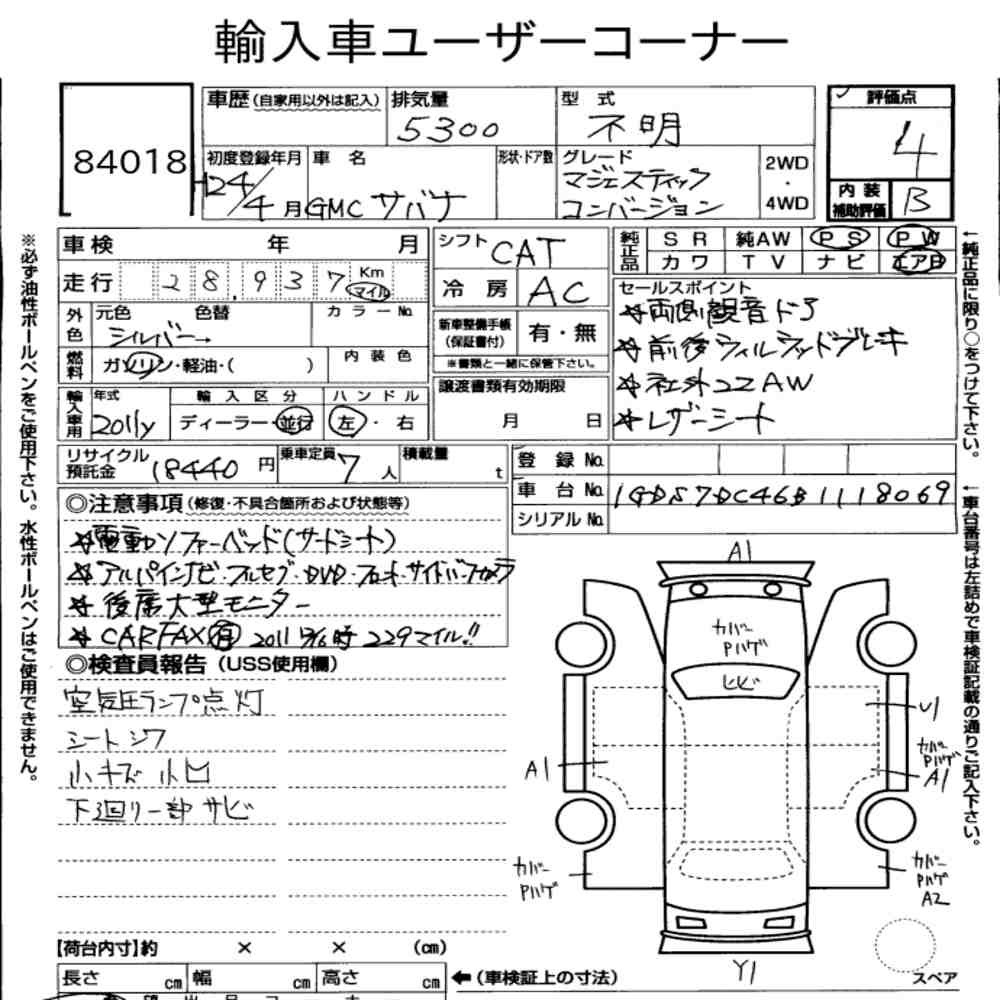 輸入車ユーザーコーナー
84018
車歴(自家用以外は記入) 排気量 型式
5300 不明
評価点
4
初度登録年月 車名 形状・ドア数 グレード
24/4月 GMC サバナ マジェスティック
コンバージョン
2WD
・
4WD
内装
補助評価 B
車検 年 月
走行 28,937 Km
マイル
外色 元色 色替 カラーNo.
シルバー→
燃料 ガソリン・軽油・( ) 内装色
輸入車用 年式 輸入区分 ハンドル
2011y ディーラー・並行 左・右
シフト CAT
冷房 AC
新車整備手帳
(保証書付) 有・無
※書類と一緒に保管下さい。
譲渡書類有効期限
月 日
純正品 SR 純AW PS PW
カワ TV ナビ エアB
セールスポイント
両側観音ドア
前後ウィルウッドブレーキ
社外22AW
レザーシート
リサイクル
預託金 18440円 乗車定員 7人 積載量 t
登録No.
車台No. 1GDS7DC46B1118069
シリアルNo.
◎注意事項(修復・不具合箇所および状態等)
電動ソファーベッド(サードシート)
アルパインナビ・フルセグ・DVD・フロント・サイドバックカメラ
後席大型モニター
CARFAX有 2011 229マイル!!
◎検査員報告(USS使用欄)
空気圧ランプ点灯
シートシワ
小キズ 小凹
下廻り一部サビ
【荷台内寸】約 × × (cm)
長さ cm 幅 cm 高さ cm ←(車検証上の寸法)
※必ず油性ボールペンをご使用下さい。水性ボールペンはご使用できません。
←純正品に限り○をつけて下さい。
←車台番号は左詰めで車検証記載の通りご記入下さい。
A1
カバー
Pハゲ
ヒビ
U1
カバー
Pハゲ
A1
A1
カバー
Pハゲ
カバー
Pハゲ
A2
Y1
スペア